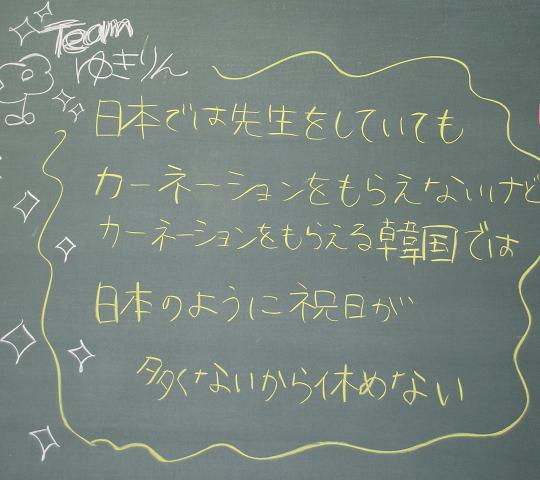 Team
ゆきりん
日本では先生をしていても
カーネーションをもらえないけど
カーネーションをもらえる韓国では
日本のように祝日が
多くないから休めない